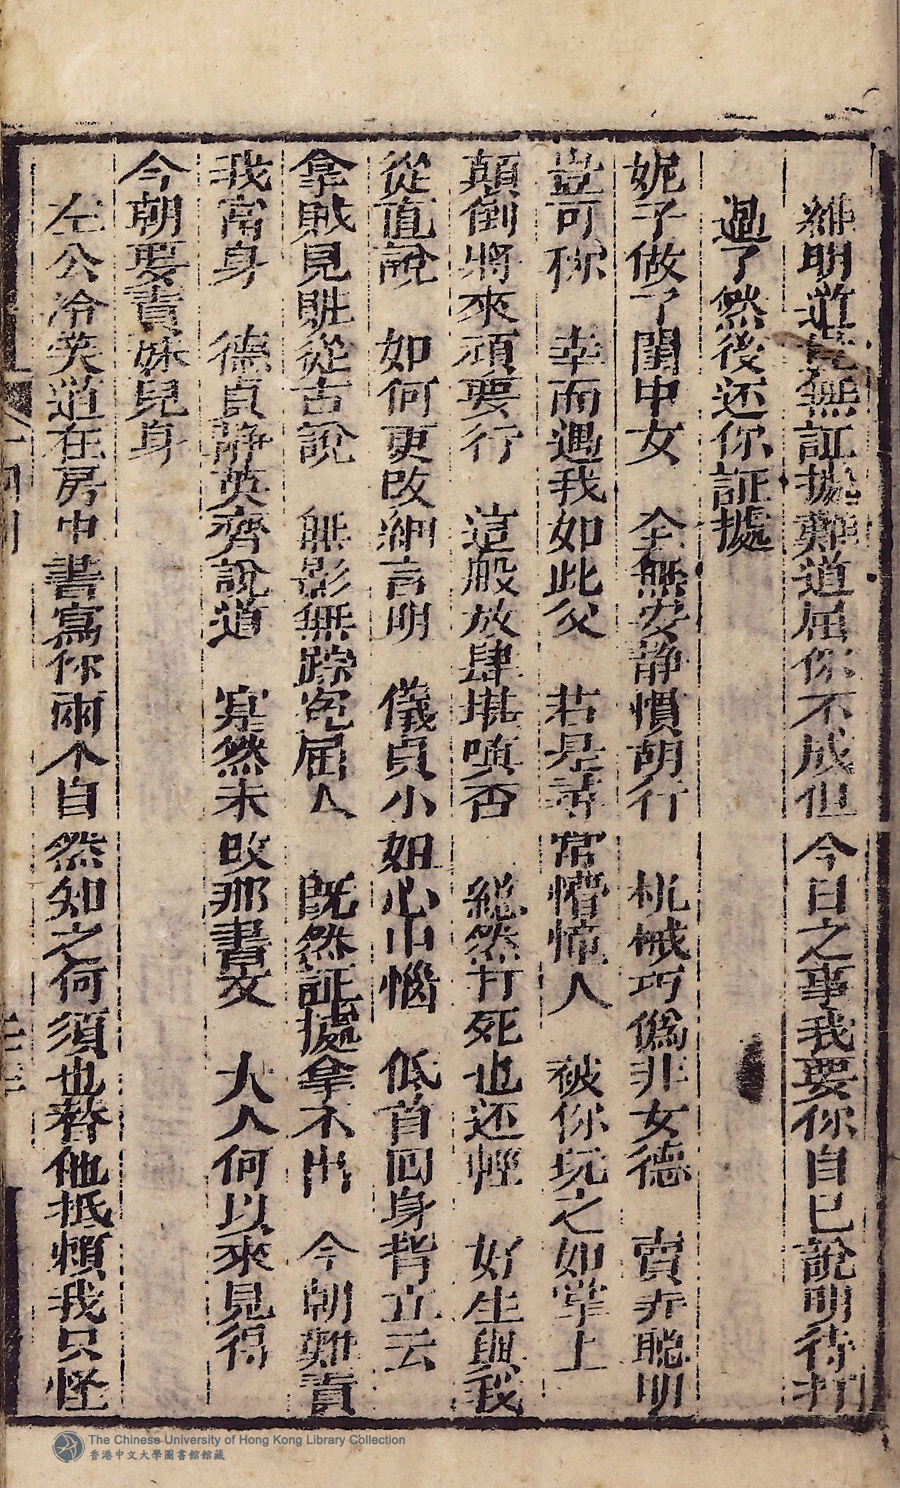 維明道若無証據難道屈你不成但今日之事我要你自已說明待打
過了然後还你証據
妮子做了閨中女　全無安静慣胡行　机械巧偽非女德　賣弄聰明
豈可你　幸而遇我如此父　若是尋常懵懂人　被你玩之如掌上
顛倒將來頑耍行　這般放肆堪嗔否　縱然打死也还輕　好生與我
從直說　如何更改細言明　儀貞小姐心中惱　低首回身背立云
拿賊見賍從古說　無影無踪寃屈人　既然証據拿不出　今朝難責
我當身　德貞静英齊說道　寔然未改那書文　大人何以來見得
今朝要責妹兒身
左公冷笑道在房中書寫你兩个自然知之何須也替他抵賴我只怪